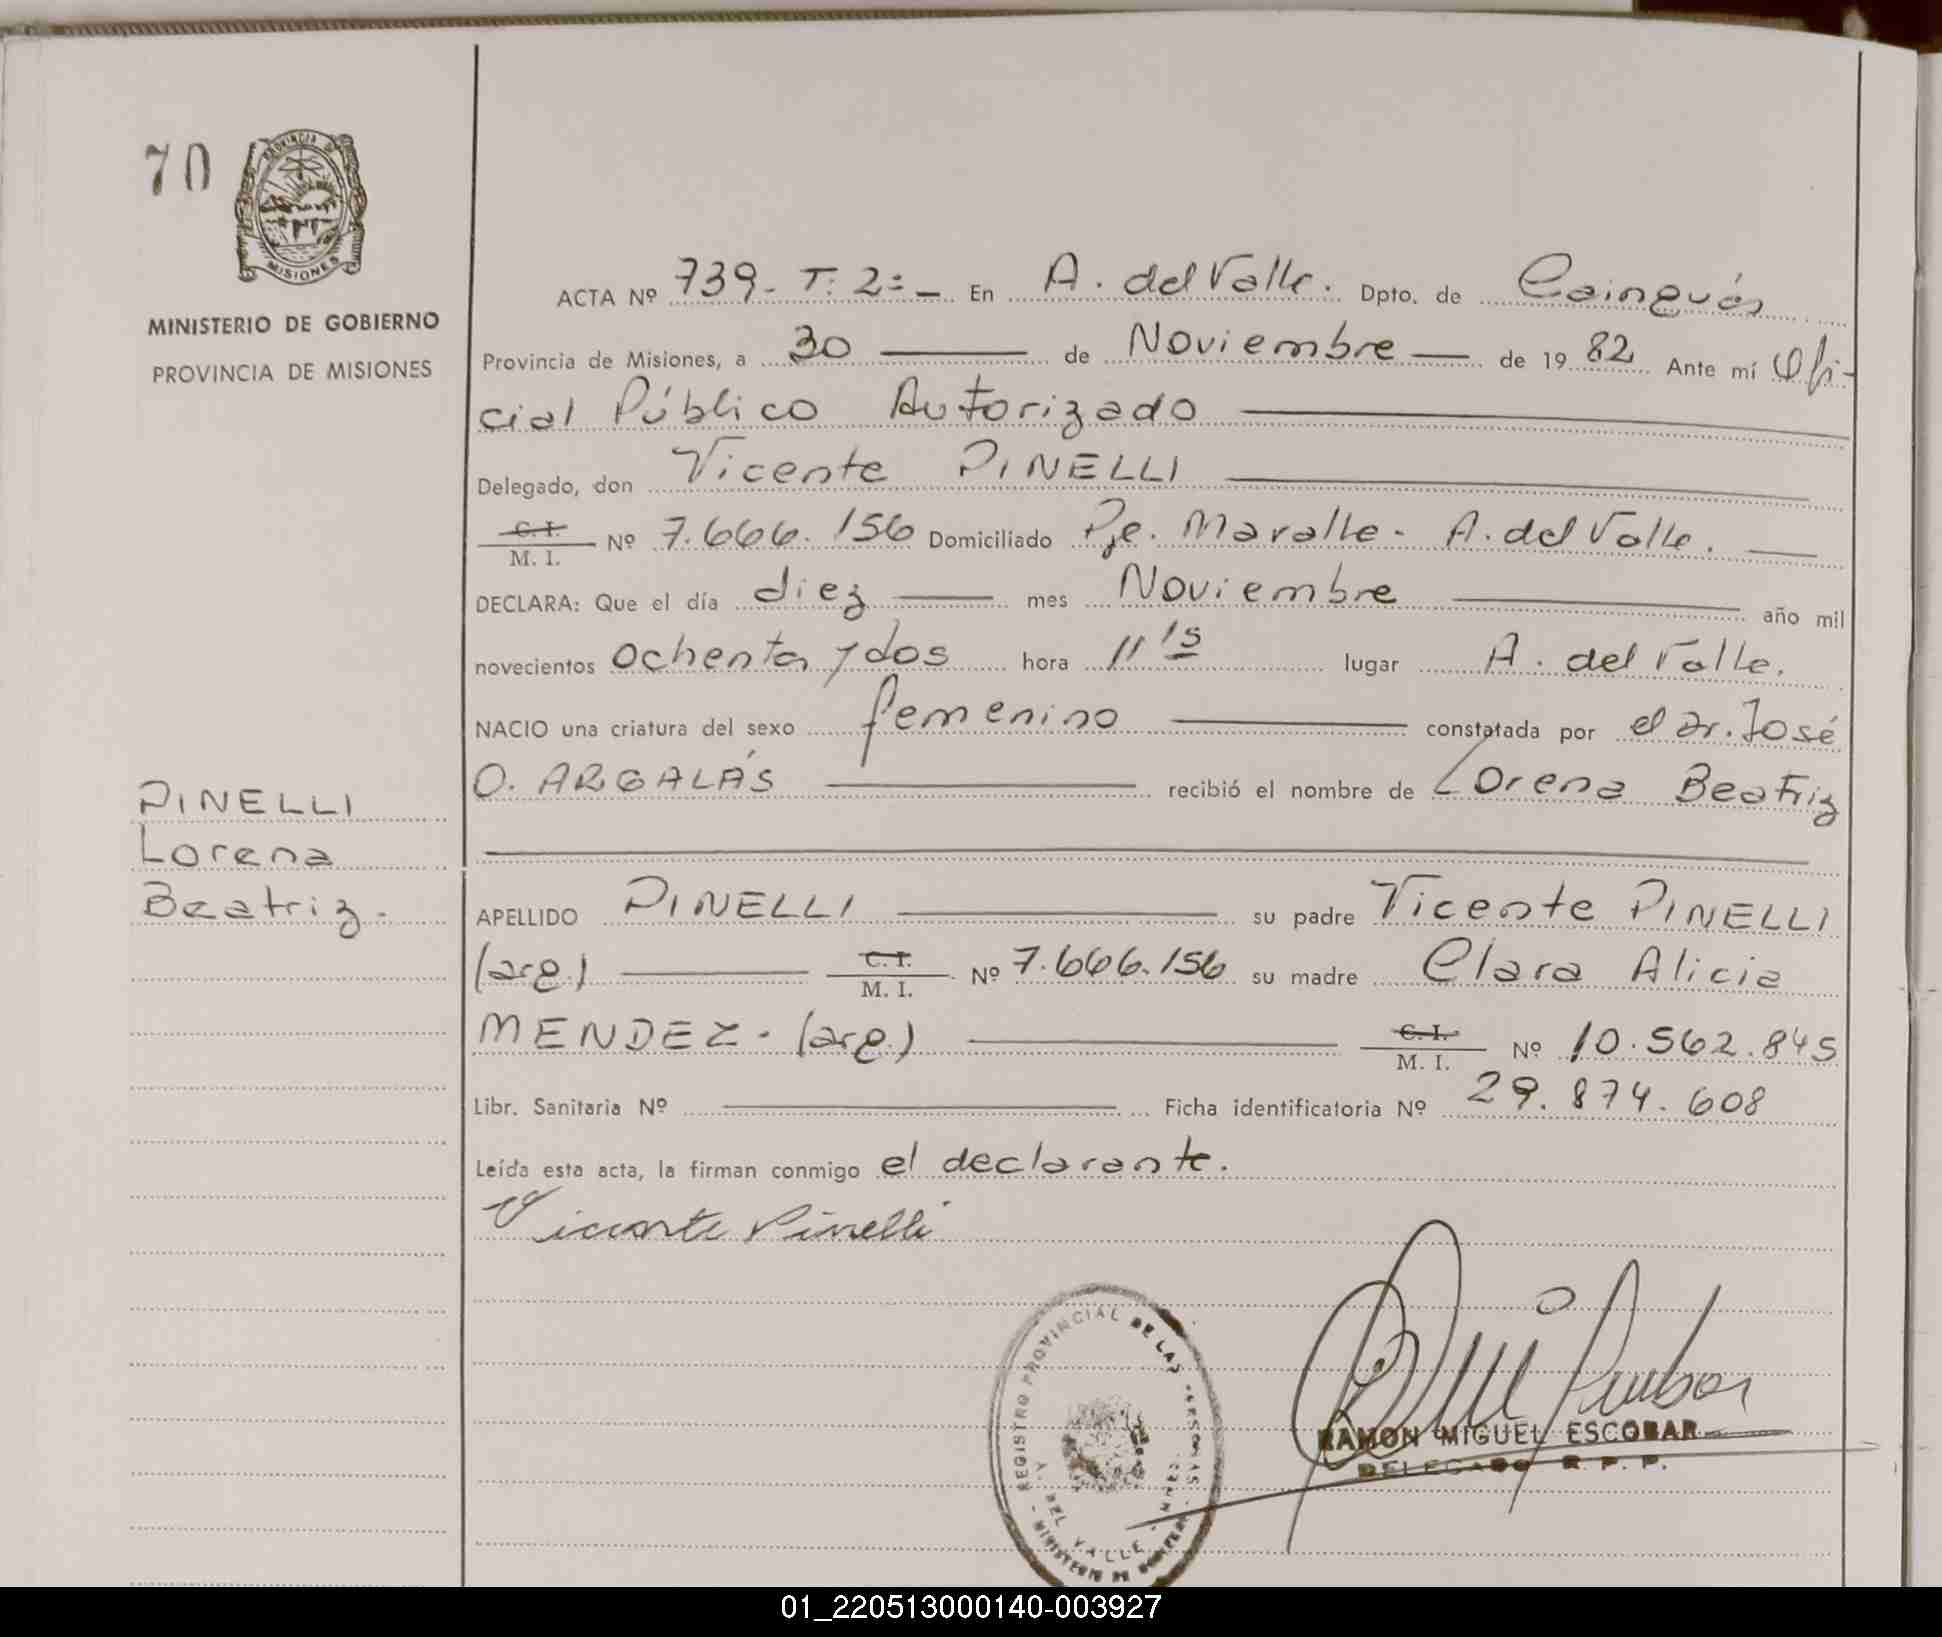 70
PROVINCIA DE
MISIONES
MINISTERIO DE GOBIERNO
PROVINCIA DE MISIONES
PINELLI
Lorena
Beatriz.
ACTA Nº 739- T: 2:- En A. del Valle. Dpto. de Cainguás
Provincia de Misiones, a 30 de Noviembre de 1982 Ante mí Ofi-
cial Público Autorizado
Delegado, don Vicente PINELLI
C. I. / M. I. Nº 7.666.156 Domiciliado Pje. Maralle- A. del Valle.
DECLARA: Que el día diez mes Noviembre año mil
novecientos ochenta y dos hora 11 15 lugar A. del Valle.
NACIO una criatura del sexo femenino constatada por el Dr. José
O. ARGALÁS recibió el nombre de Lorena Beatriz
APELLIDO PINELLI su padre Vicente PINELLI
(arg.) C. I. / M. I. Nº 7.666.156 su madre Clara Alicia
MENDEZ. (arg.) C. I. / M. I. Nº 10.562.845
Libr. Sanitaria Nº Ficha identificatoria Nº 29.874.608
Leída esta acta, la firman conmigo el declarante.
Vicente Pinelli
REGISTRO PROVINCIAL DE LAS PERSONAS
DEL VALLE
MINISTERIO DE GOBIERNO
RAMON MIGUEL ESCOBAR
DELEGADO R. P. P.
01_220513000140-003927